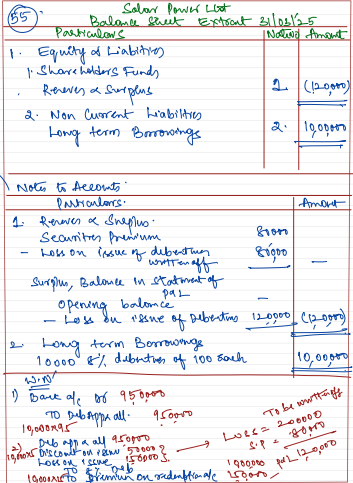 55
Solar Power Ltd
Balance Sheet Extract 31/03/25
Particulars Note no Amount
1. Equity & Liabilities
1. Shareholders Funds
Reserves & Surplus 1 (120,000)
2. Non Current Liabilities
Long term Borrowings 2. 10,00,000
Notes to Accounts.
Particulars. Amount
1. Reserves & Surplus.
Securities Premium 80000
- Loss on issue of debentures written off 80,000 —
Surplus, Balance in Statement of P&L
Opening balance —
- Loss on issue of Debentures 120000 (1,20,000)
2. Long term Borrowings
10000 8% debentures of 100 each 10,00,000
W.N
1) Bank a/c Dr 950,000
To Deb App & all. 950,000
10,000×95
2) Deb app & all 950,000
Discount on issue 50000
Loss on issue 150000
To 8% Deb 1000,000
To Premium on redemption a/c 150,000
10000×15
To be written off
Loss = 200000
S.P = 80000
P&L 120,000